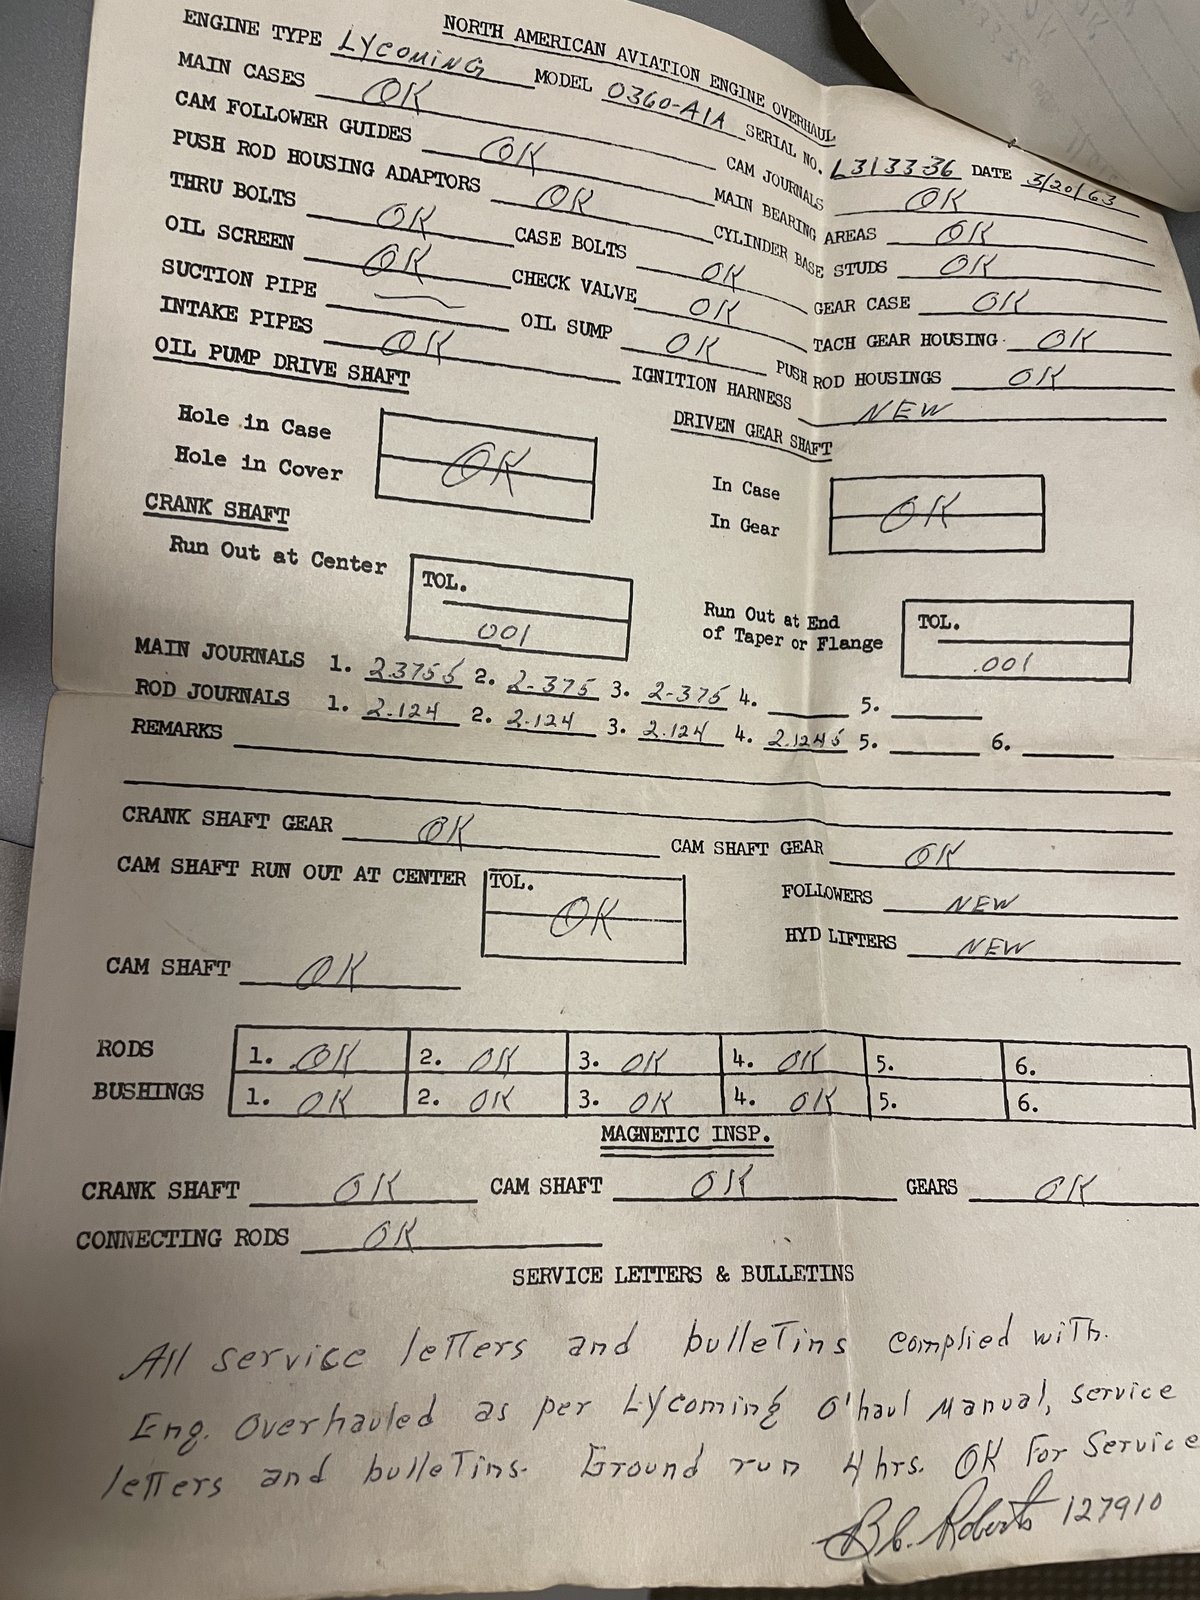 NORTH AMERICAN AVIATION ENGINE OVERHAUL
ENGINE TYPE Lycoming MODEL O360-A1A SERIAL NO. L3133-36 DATE 3/20/63
MAIN CASES OK CAM JOURNALS OK
CAM FOLLOWER GUIDES OK MAIN BEARING AREAS OK
PUSH ROD HOUSING ADAPTORS OK CYLINDER BASE STUDS OK
THRU BOLTS OK CASE BOLTS OK GEAR CASE OK
OIL SCREEN OK CHECK VALVE OK TACH GEAR HOUSING OK
SUCTION PIPE OIL SUMP OK PUSH ROD HOUSINGS OK
INTAKE PIPES OK IGNITION HARNESS NEW
OIL PUMP DRIVE SHAFT DRIVEN GEAR SHAFT
Hole in Case In Case
OK OK
Hole in Cover In Gear
CRANK SHAFT
Run Out at Center TOL. Run Out at End TOL.
001 of Taper or Flange .001
MAIN JOURNALS 1. 2.3755 2. 2-375 3. 2-375 4. 5.
ROD JOURNALS 1. 2.124 2. 2.124 3. 2.124 4. 2.1245 5. 6.
REMARKS
CRANK SHAFT GEAR OK CAM SHAFT GEAR OK
CAM SHAFT RUN OUT AT CENTER TOL. OK FOLLOWERS NEW
HYD LIFTERS NEW
CAM SHAFT OK
RODS 1. OK 2. OK 3. OK 4. OK 5. 6.
BUSHINGS 1. OK 2. OK 3. OK 4. OK 5. 6.
MAGNETIC INSP.
CRANK SHAFT OK CAM SHAFT OK GEARS OK
CONNECTING RODS OK
SERVICE LETTERS & BULLETINS
All service letters and bulletins complied with.
Eng. Overhauled as per Lycoming O'haul Manual, service
letters and bulletins. Ground run 4 hrs. OK For Service
Roberts 127910